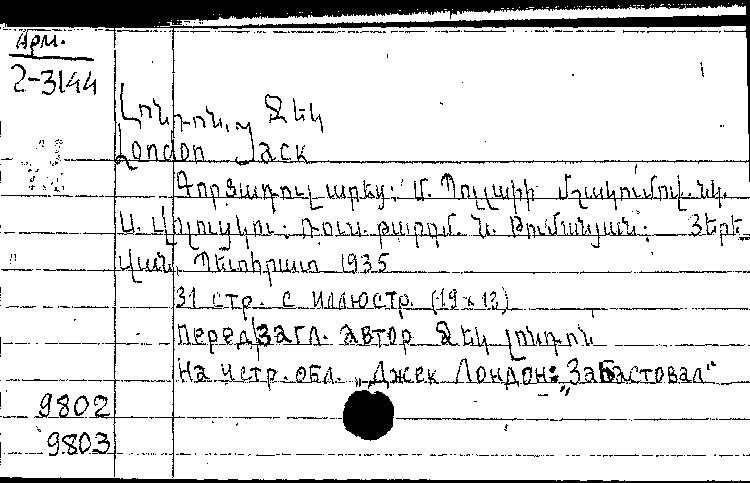 Арм.
2-3144
Լոնդոն, Ջեկ
London Jack
Գործադուլ արեց: Մ. Պոլյարի մշակումով. նկ.
Ա. Վոլուսկու: Ռուս. թարգմ. Ն. Թումանյան: Յերե
վան, Պետհրատ 1935
31 стр. с иллюстр. (19 x 13)
Перед загл. автор Ջեկ Լոնդոն
На 4 стр. обл. „Джек Лондон: „Забастовал“
9802
9803